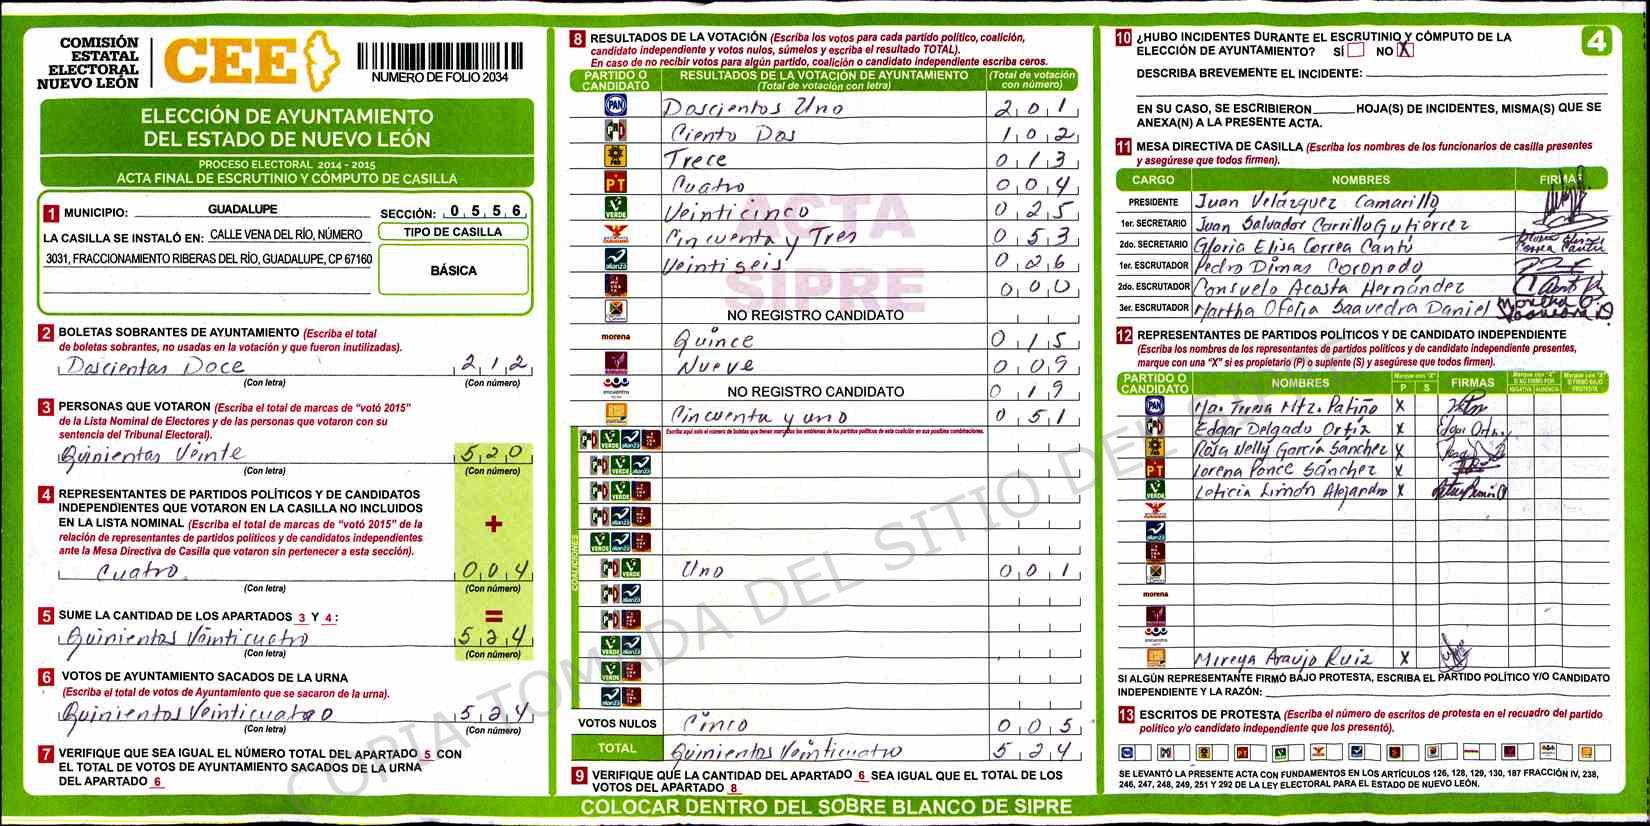 COMISIÓN
ESTATAL
ELECTORAL
NUEVO LEÓN
CEE
NUMERO DE FOLIO 2034
ELECCIÓN DE AYUNTAMIENTO
DEL ESTADO DE NUEVO LEÓN
PROCESO ELECTORAL 2014 - 2015
ACTA FINAL DE ESCRUTINIO Y CÓMPUTO DE CASILLA
1 MUNICIPIO: GUADALUPE SECCIÓN: 0 5 5 6
LA CASILLA SE INSTALÓ EN: CALLE VENA DEL RÍO, NÚMERO
3031, FRACCIONAMIENTO RIBERAS DEL RÍO, GUADALUPE, CP 67160
TIPO DE CASILLA
BÁSICA
2 BOLETAS SOBRANTES DE AYUNTAMIENTO (Escriba el total
de boletas sobrantes, no usadas en la votación y que fueron inutilizadas).
Doscientas Doce 2 1 2
(Con letra) (Con número)
3 PERSONAS QUE VOTARON (Escriba el total de marcas de “votó 2015”
de la Lista Nominal de Electores y de las personas que votaron con su
sentencia del Tribunal Electoral).
Quinientas Veinte 5 2 0
(Con letra) (Con número)
4 REPRESENTANTES DE PARTIDOS POLÍTICOS Y DE CANDIDATOS
INDEPENDIENTES QUE VOTARON EN LA CASILLA NO INCLUIDOS
EN LA LISTA NOMINAL (Escriba el total de marcas de “votó 2015” de la
relación de representantes de partidos políticos y de candidatos independientes
ante la Mesa Directiva de Casilla que votaron sin pertenecer a esta sección).
+
Cuatro 0 0 4
(Con letra) (Con número)
5 SUME LA CANTIDAD DE LOS APARTADOS 3 Y 4: =
Quinientos Veinticuatro 5 2 4
(Con letra) (Con número)
6 VOTOS DE AYUNTAMIENTO SACADOS DE LA URNA
(Escriba el total de votos de Ayuntamiento que se sacaron de la urna).
Quinientos Veinticuatro 5 2 4
(Con letra) (Con número)
7 VERIFIQUE QUE SEA IGUAL EL NÚMERO TOTAL DEL APARTADO 5 CON
EL TOTAL DE VOTOS DE AYUNTAMIENTO SACADOS DE LA URNA
DEL APARTADO 6
8 RESULTADOS DE LA VOTACIÓN (Escriba los votos para cada partido político, coalición,
candidato independiente y votos nulos, súmelos y escriba el resultado TOTAL).
En caso de no recibir votos para algún partido, coalición o candidato independiente escriba ceros.
PARTIDO O CANDIDATO RESULTADOS DE LA VOTACIÓN DE AYUNTAMIENTO (Total de votación con letra) (Total de votación con número)
PAN Doscientos Uno 2 0 1
PRD Ciento Dos 1 0 2
Trece 0 1 3
PT Cuatro 0 0 4
VERDE Veinticinco 0 2 5
Cincuenta y Tres 0 5 3
alianza Veintiseis 0 2 6
0 0 0
NO REGISTRO CANDIDATO
morena Quince 0 1 5
Nueve 0 0 9
NO REGISTRO CANDIDATO 0 1 9
Cincuenta y uno 0 5 1
Escriba aquí solo el número de boletas que tienen marcados los emblemas de los partidos políticos de esta coalición en sus posibles combinaciones.
COALICIONES
Uno 0 0 1
VOTOS NULOS Cinco 0 0 5
TOTAL Quinientos Veinticuatro 5 2 4
9 VERIFIQUE QUE LA CANTIDAD DEL APARTADO 6 SEA IGUAL QUE EL TOTAL DE LOS
VOTOS DEL APARTADO 8
ACTA
SIPRE
10 ¿HUBO INCIDENTES DURANTE EL ESCRUTINIO Y CÓMPUTO DE LA
ELECCIÓN DE AYUNTAMIENTO? SÍ NO X
4
DESCRIBA BREVEMENTE EL INCIDENTE:
EN SU CASO, SE ESCRIBIERON HOJA(S) DE INCIDENTES, MISMA(S) QUE SE
ANEXA(N) A LA PRESENTE ACTA.
11 MESA DIRECTIVA DE CASILLA (Escriba los nombres de los funcionarios de casilla presentes
y asegúrese que todos firmen).
CARGO NOMBRES FIRMAS
PRESIDENTE Juan Velázquez Camarillo
1er. SECRETARIO Juan Salvador Carrillo Gutiérrez
2do. SECRETARIO Gloria Elisa Correa Cantú
1er. ESCRUTADOR Pedro Dimas Coronado
2do. ESCRUTADOR Consuelo Acosta Hernández
3er. ESCRUTADOR Martha Ofelia Saavedra Daniel
12 REPRESENTANTES DE PARTIDOS POLÍTICOS Y DE CANDIDATO INDEPENDIENTE
(Escriba los nombres de los representantes de partidos políticos y de candidato independiente presentes,
marque con una “X” si es propietario (P) o suplente (S) y asegúrese que todos firmen).
PARTIDO O CANDIDATO NOMBRES Marque con "X" P S FIRMAS
PAN Ma. Teresa Mtz. Patiño X
Edgar Delgado Ortiz X
Rosa Nelly García Sánchez X
PT Lorena Ponce Sánchez X
VERDE Leticia Limón Alejandro X
morena
Mireya Araujo Ruiz X
SI ALGÚN REPRESENTANTE FIRMÓ BAJO PROTESTA, ESCRIBA EL PARTIDO POLÍTICO Y/O CANDIDATO
INDEPENDIENTE Y LA RAZÓN:
13 ESCRITOS DE PROTESTA (Escriba el número de escritos de protesta en el recuadro del partido
político y/o candidato independiente que los presentó).
SE LEVANTÓ LA PRESENTE ACTA CON FUNDAMENTOS EN LOS ARTÍCULOS 126, 128, 129, 130, 187 FRACCIÓN IV, 238,
246, 247, 248, 249, 251 Y 292 DE LA LEY ELECTORAL PARA EL ESTADO DE NUEVO LEÓN.
COLOCAR DENTRO DEL SOBRE BLANCO DE SIPRE
COPIA TOMADA DEL SITIO DEL SIPRE